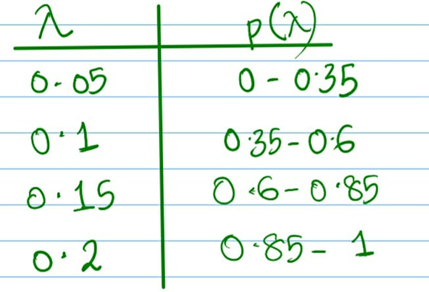 λ p(λ)
0.05 0 - 0.35
0.1 0.35 - 0.6
0.15 0.6 - 0.85
0.2 0.85 - 1